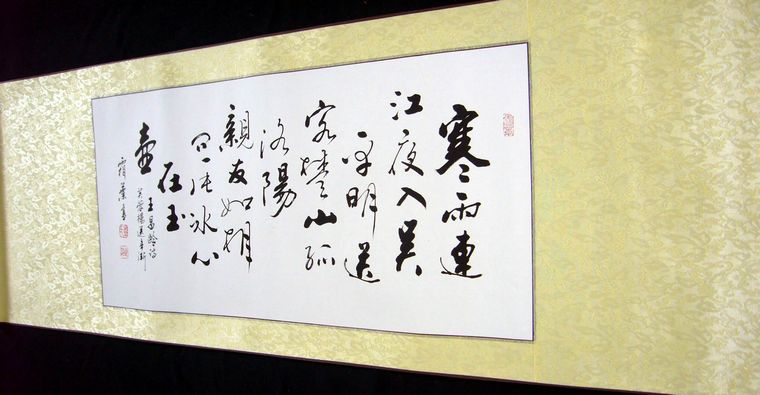 寒雨連
江夜入吴
平明送
客楚山孤
洛陽
親友如相
问一片冰心
在玉
壺
王昌齡詩
芙蓉樓送辛漸
霜葉書